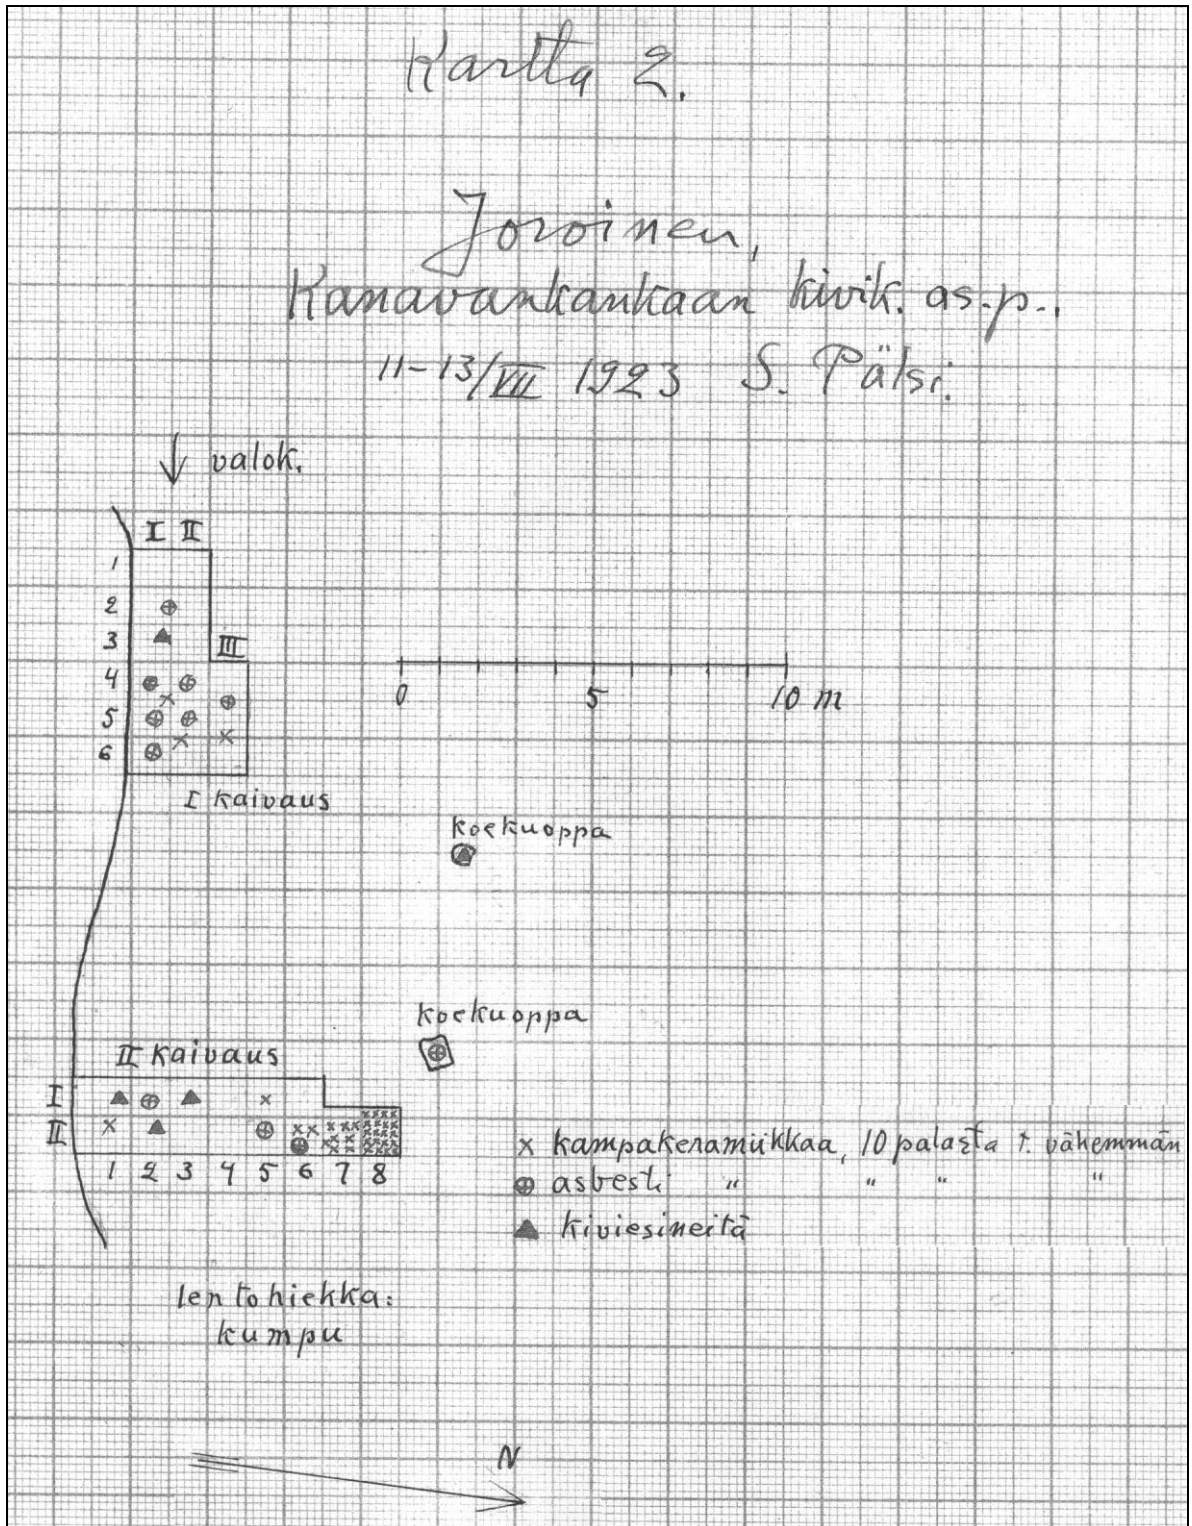 Kartta 2.
Joroinen,
Kanavankankaan kivik. as.p.,
11-13/VII 1923 S. Pälsi.
valok.
I II
1
2
3 III
4
5
6
0 5 10 m
I kaivaus
koekuoppa
koekuoppa
II kaivaus
I
II
1 2 3 4 5 6 7 8
x kampakeramiikkaa, 10 palasta t. vähemmän
asbesti " " " "
kiviesineitä
lentohiekka:
kumpu
N